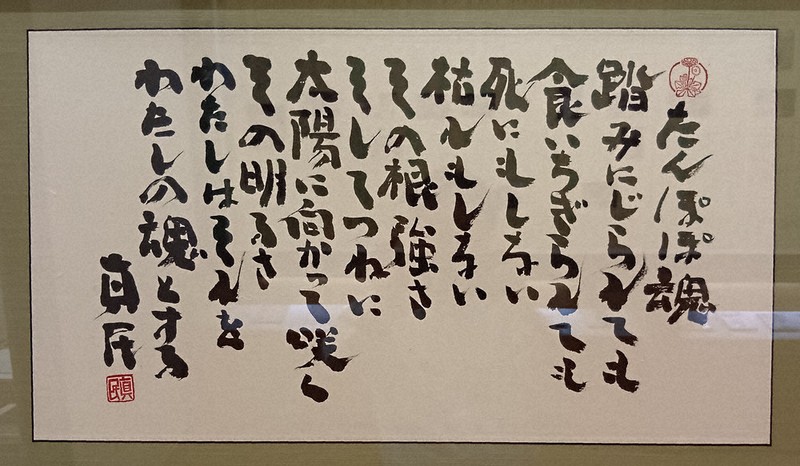 たんぽぽ魂
踏みにじられても
食いちぎられても
死にもしない
枯れもしない
その根強さ
そしてつねに
太陽に向かって咲く
その明るさ
わたしはそれを
わたしの魂とする
真民
真民